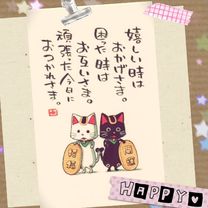 嬉しい時は
おかげさま。
困った時は
お互いさま。
頑張った今日に
おつかれさま。
HAPPY